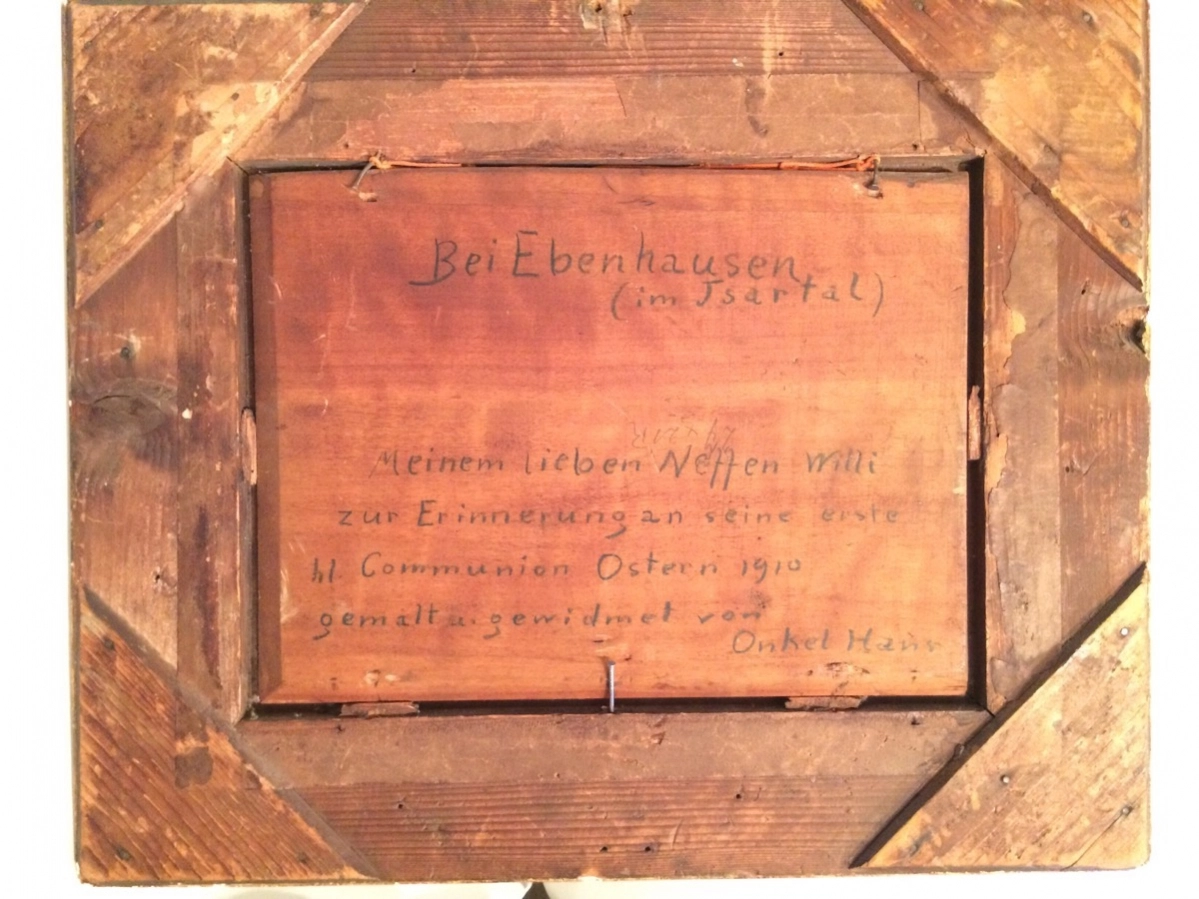 Bei Ebenhausen
(im Isartal)
Meinem lieben Neffen Willi
zur Erinnerung an seine erste
hl. Communion Ostern 1910
gemalt u. gewidmet von
Onkel Hans